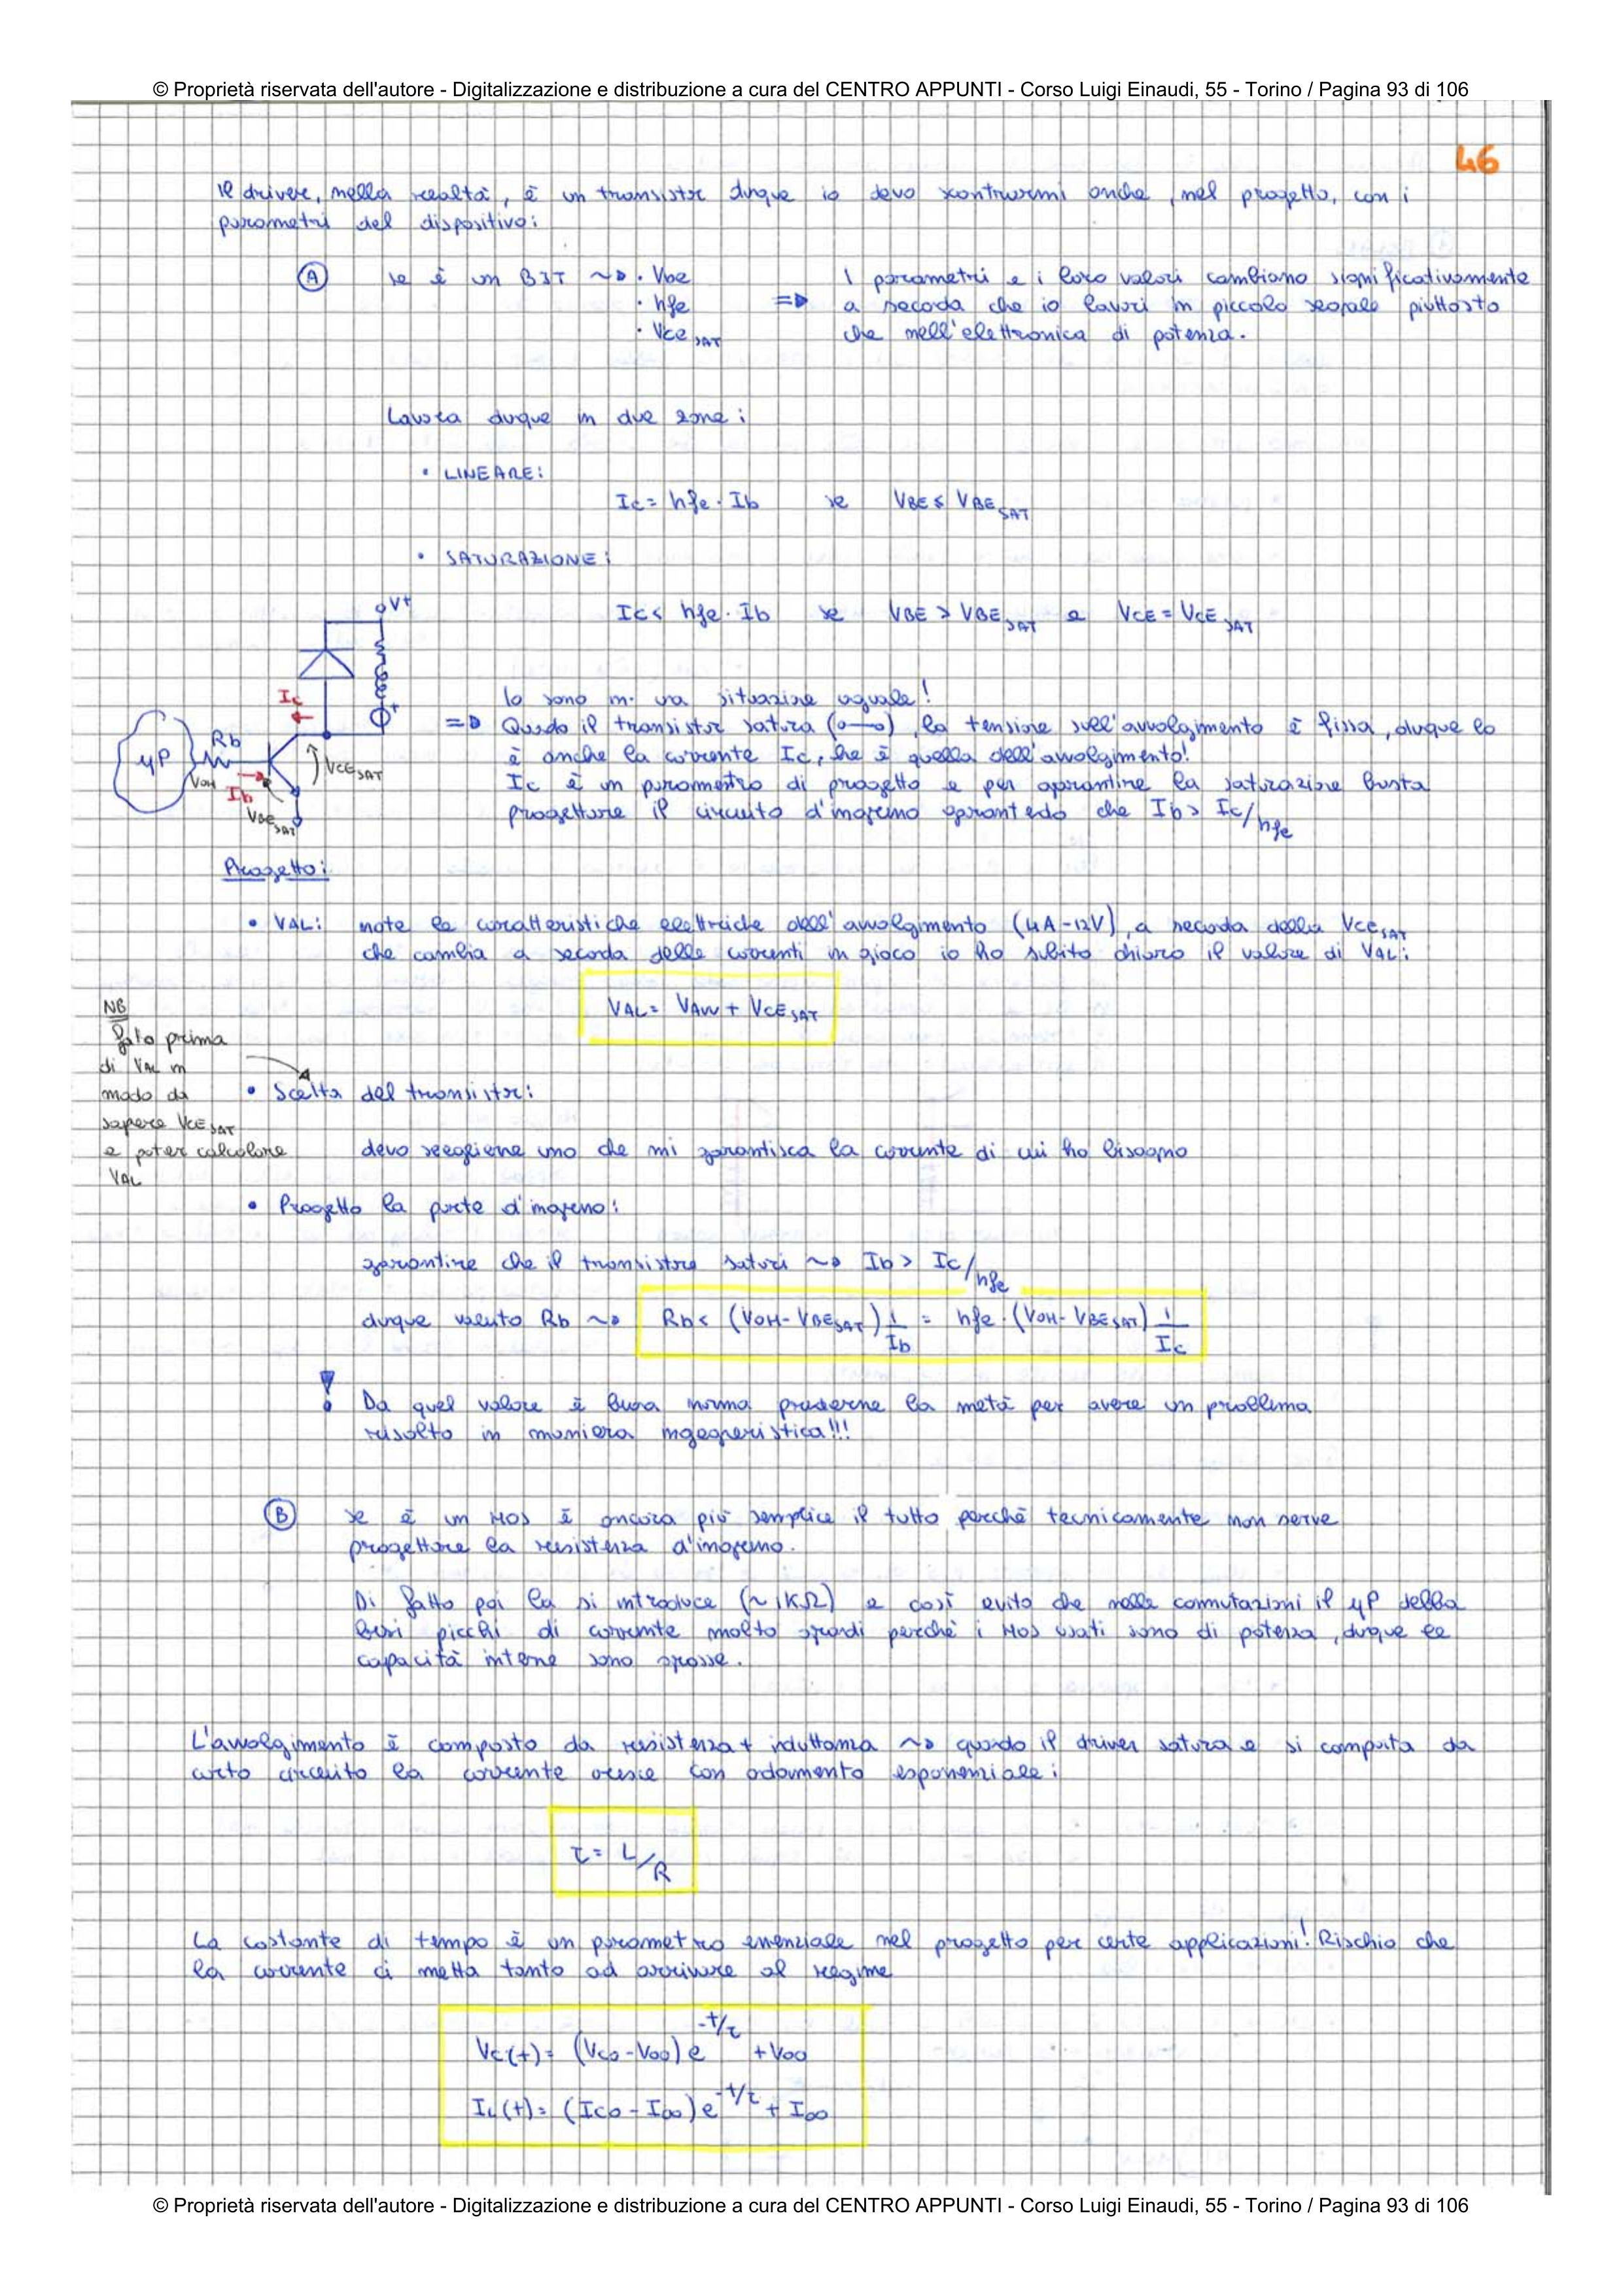 © Proprietà riservata dell'autore - Digitalizzazione e distribuzione a cura del CENTRO APPUNTI - Corso Luigi Einaudi, 55 - Torino / Pagina 93 di 106
46
Il driver, nella realtà, è un transistor dunque io devo scontrarmi anche, nel progetto, con i
parametri del dispositivo:
A se è un BJT ~> • Vbe
• hfe
• VCE SAT
=> I parametri e i loro valori cambiano significativamente
a seconda che io lavori in piccolo segnale piuttosto
che nell'elettronica di potenza.
Lavora dunque in due zone:
• LINEARE:
Ic = hfe · Ib se VBE ≤ VBE SAT
• SATURAZIONE:
Ic < hfe · Ib se VBE > VBE SAT e VCE = VCE SAT
V+
Ic
Rb
μP
VOH
Ib
VCE SAT
VBE SAT
+
Io sono in una situazione uguale!
=> Quando il transistor satura (o—o), la tensione sull'avvolgimento è fissa, dunque lo
è anche la corrente Ic, che è quella dell'avvolgimento!
Ic è un parametro di progetto e per garantire la saturazione basta
progettare il circuito d'ingresso garantendo che Ib > Ic/hfe
Progetto:
• VAL: note le caratteristiche elettriche dell'avvolgimento (4A-12V), a seconda della VCE SAT
che cambia a seconda delle correnti in gioco io ho subito chiaro il valore di VAL:
VAL = VAVV + VCE SAT
NB
fallo prima
di VAL in
modo da
sapere VCE SAT
e poter calcolare
VAL
• Scelta del transistor:
devo scegliere uno che mi garantisca la corrente di cui ho bisogno
• Progetto la parte d'ingresso:
garantire che il transistore saturi ~> Ib > Ic/hfe
dunque Rb ~> Rb < (VOH - VBE SAT) 1/Ib = hfe · (VOH - VBE SAT) 1/Ic
! Da quel valore è buona norma prenderne la metà per avere un problema
risolto in maniera ingegneristica!!!
B se è un MOS è ancora più semplice il tutto perchè tecnicamente non serve
progettare la resistenza d'ingresso.
Di fatto poi la si introduce (~1KΩ) e così evito che nelle commutazioni il μP debba
picchi di corrente molto grandi perchè i MOS usati sono di potenza, dunque le
capacità interne sono grosse.
L'avvolgimento è composto da resistenza + induttanza ~> quando il driver satura e si comporta da
corto circuito la corrente cresce con andamento esponenziale:
τ = L/R
La costante di tempo è un parametro essenziale nel progetto per certe applicazioni! Rischio che
la corrente ci metta tanto ad arrivare al regime
Vc(t) = (Vc0 - V∞) e^-t/τ + V∞
IL(t) = (Ic0 - I∞) e^-t/τ + I∞
© Proprietà riservata dell'autore - Digitalizzazione e distribuzione a cura del CENTRO APPUNTI - Corso Luigi Einaudi, 55 - Torino / Pagina 93 di 106